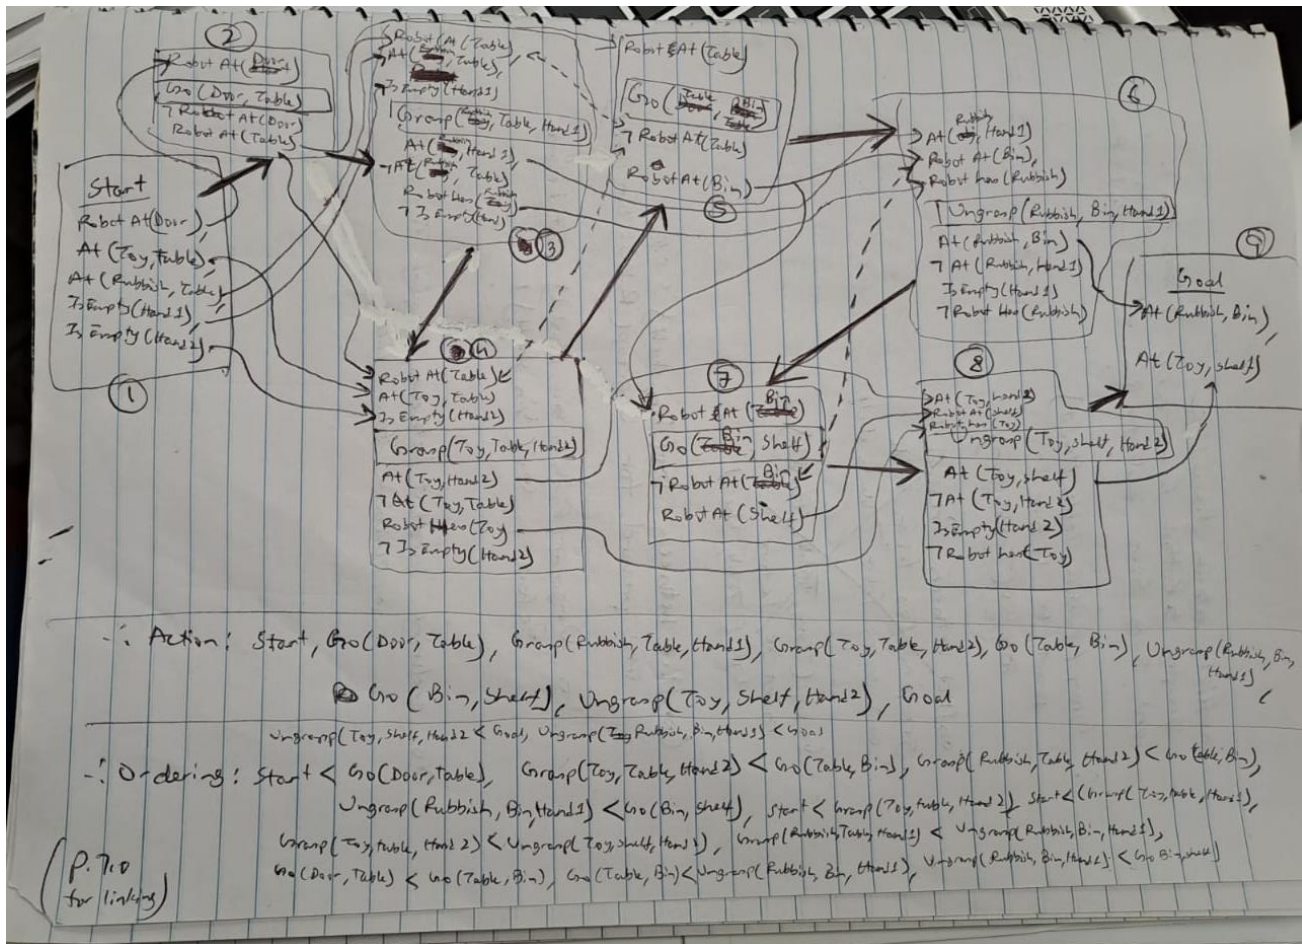 ②
Robot At(Door)
Go(Door, Table)
¬ Robot At(Door)
Robot At(Table)
Start
Robot At(Door)
At(Toy, Table)
At(Rubbish, Table)
Is Empty(Hand1)
Is Empty(Hand2)
①
Robot (At(Table)
At(Rubbish, Table),
Is Empty(Hand1)
Grasp(Rubbish, Table, Hand1)
At(Rubbish, Hand1)
¬At(Rubbish, Table)
Robot Has(Rubbish)
¬ Is Empty(Hand)
③
④
Robot At(Table)
At(Toy, Table)
Is Empty(Hand2)
Grasp(Toy, Table, Hand2)
At(Toy, Hand2)
¬ At(Toy, Table)
Robot Has(Toy)
¬ Is Empty(Hand2)
Robot At(Table)
Go(Table, Bin)
¬ Robot At(Table)
Robot At(Bin)
⑤
⑥
At(Rubbish, Hand1)
Robot At(Bin),
Robot has(Rubbish)
Ungrasp(Rubbish, Bin, Hand1)
At(Rubbish, Bin)
¬ At(Rubbish, Hand1)
Is Empty(Hand1)
¬ Robot Has(Rubbish)
⑦
Robot At(Bin)
Go(Bin, Shelf)
¬ Robot At(Bin)
Robot At(Shelf)
⑧
At(Toy, hand2)
Robot At(shelf)
Robot has(Toy)
Ungrasp(Toy, shelf, Hand2)
At(Toy, shelf)
¬At(Toy, Hand2)
Is Empty(Hand2)
¬ Robot has(Toy)
⑨
Goal
At(Rubbish, Bin),
At(Toy, shelf)
∴ Action: Start, Go(Door, Table), Grasp(Rubbish, Table, Hand1), Grasp(Toy, Table, Hand2), Go(Table, Bin), Ungrasp(Rubbish, Bin, Hand1),
Go(Bin, Shelf), Ungrasp(Toy, Shelf, Hand2), Goal
Ungrasp(Toy, Shelf, Hand2 < Goal, Ungrasp(Rubbish, Bin, Hand1) < Goal
∴ Ordering: Start < Go(Door, Table), Grasp(Toy, Table, Hand2) < Go(Table, Bin), Grasp(Rubbish, Table, Hand2) < Go(Table, Bin),
Ungrasp(Rubbish, Bin, Hand1) < Go(Bin, Shelf), Start < Grasp(Toy, table, Hand2), Start < (Grasp(Toy, table, Hand1),
Grasp(Toy, table, Hand2) < Ungrasp(Toy, shelf, Hand2), Grasp(Rubbish, Table, Hand1) < Ungrasp(Rubbish, Bin, Hand1),
Go(Door, Table) < Go(Table, Bin), Go(Table, Bin) < Ungrasp(Rubbish, Bin, Hand1), Ungrasp(Rubbish, Bin, Hand1) < Go Bin, shelf)
(P.T.O
for linking)